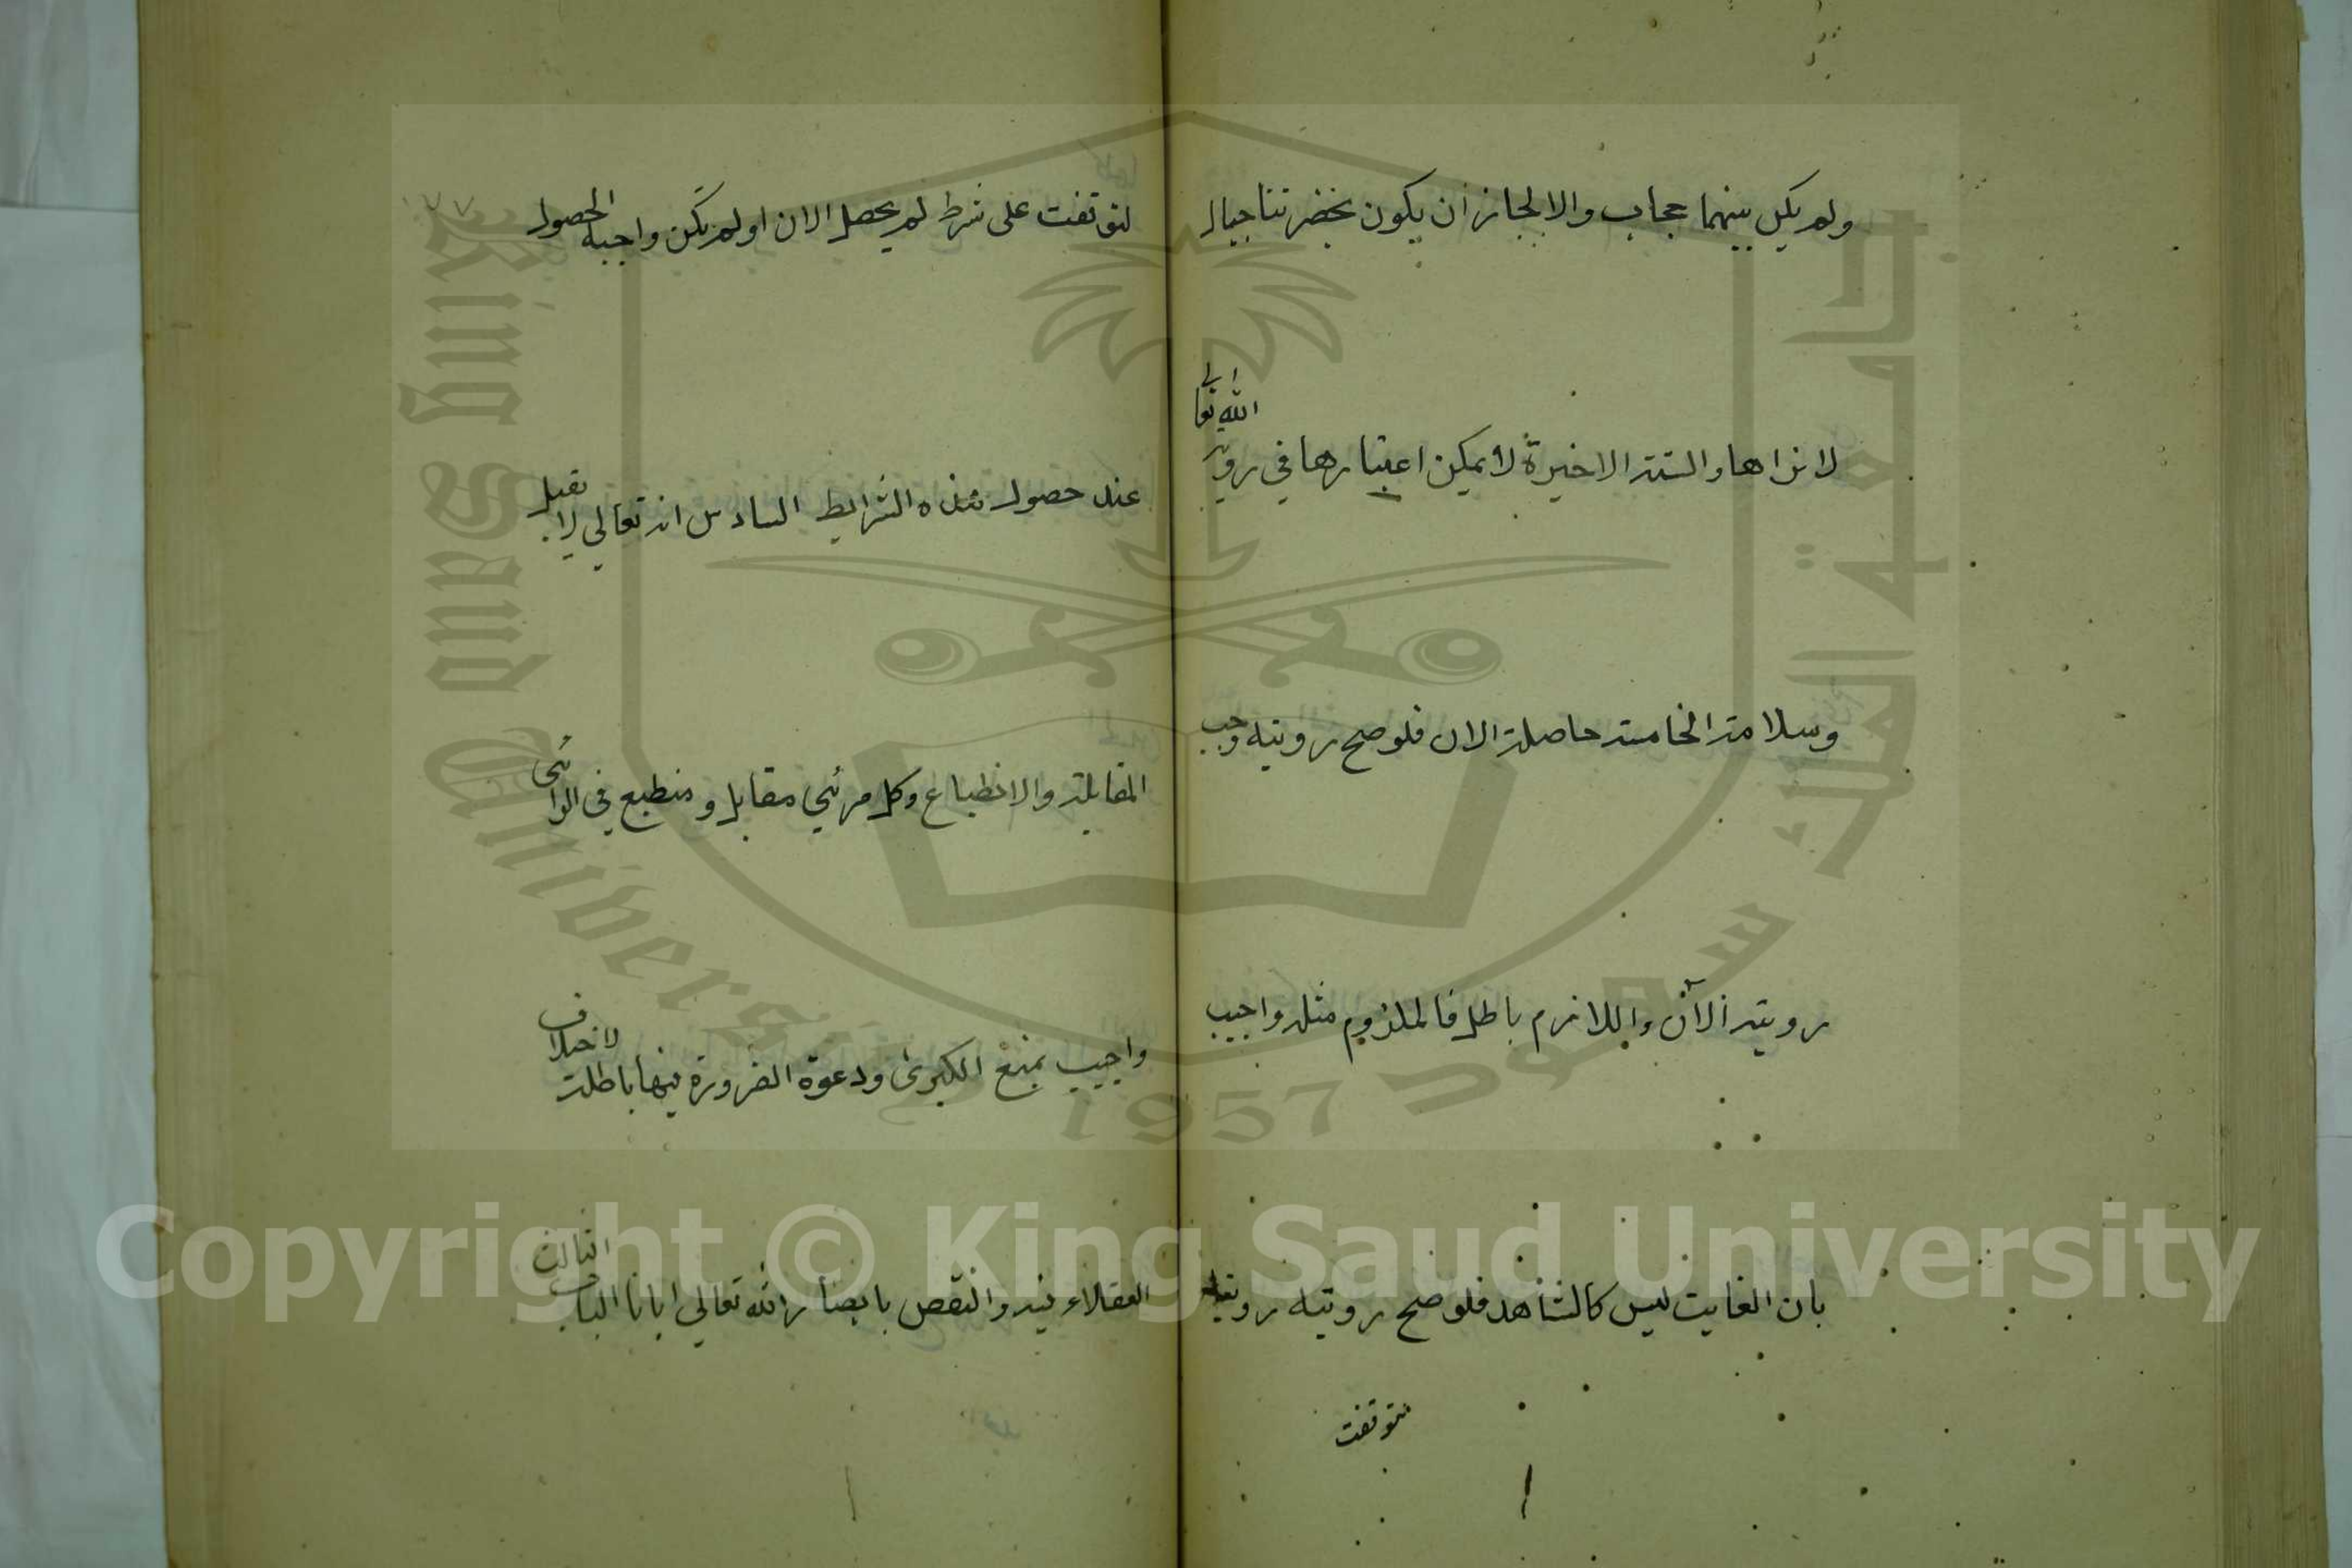 ولم يكن بينهما حجاب والا لجاز ان يكون بحضرتنا جبال
لا نراها والستة الاخيرة لا يمكن اعتبارها في روية
الله تعا
لى
وسلامة الخامسة حاصلة الان فلو صح رويته وجب
رويته الآن واللازم باطل فالملزوم مثله واجيب
بان الغايب ليس كالشاهد فلو صح رويته رويته
تتوقفت
لتوقفت على شرط لم يحصل الان او لم تكن واجبه الحصول
عند حصول هذه الشرايط السادس انه تعالى لا يقبل
المقابلة والانطباع وكل مرئي مقابل ومنطبع في الرائي
واجيب بمنع الكبرى ودعوة الضرورة فيها باطلة لاختلاف
العقلاء فيه والنقض بابصار الله تعالى ايانا الباب الثالث
King Saud University
1957
Copyright © King Saud University